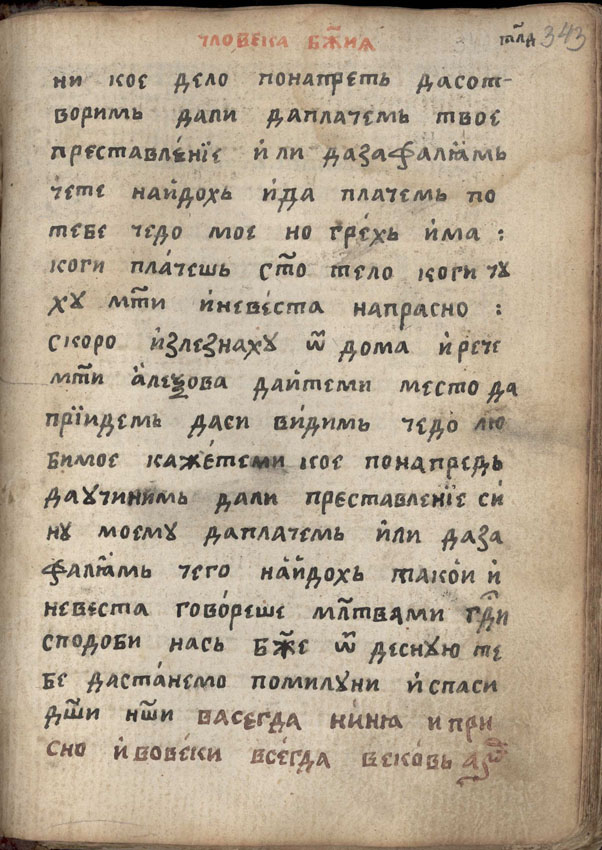 чловека бж҃иꙗ тл҃д 343
ни кое дело понапреть дасот-
воримь дали даплачемь твое
преставле́нїе и҆ ли дазафалꙗ҆мь
чете наи́дохь и҆да плачемь по
тебе чедо мое но грѣхь и҆ма :
коги пла́чешь ст҃о тело коги чꙋ
хꙋ мт҃и и҆неве́ста напрасно :
скоро и҆злезнахꙋ ѿ дома и҆рече
мт҃и а҆леѯова даи́теми место да
прїи́демь даси ви́димь чедо лю
бимое каже́теми кое понапредь
даꙋчинимь дали преставленїе си́
нꙋ моемꙋ даплачемь и҆ли даза
фалꙗ҆мь чего наи́дохь такои и҆
невеста гово́реше мл҃твами гд҃и
сподоби нась бж҃е ѿ деснꙋю те
бе даста́немо помилꙋни и҆ спаси
дш҃и нш҃и васегда ни́ню и при
сно и҆ вовеки все́гда веко́вь